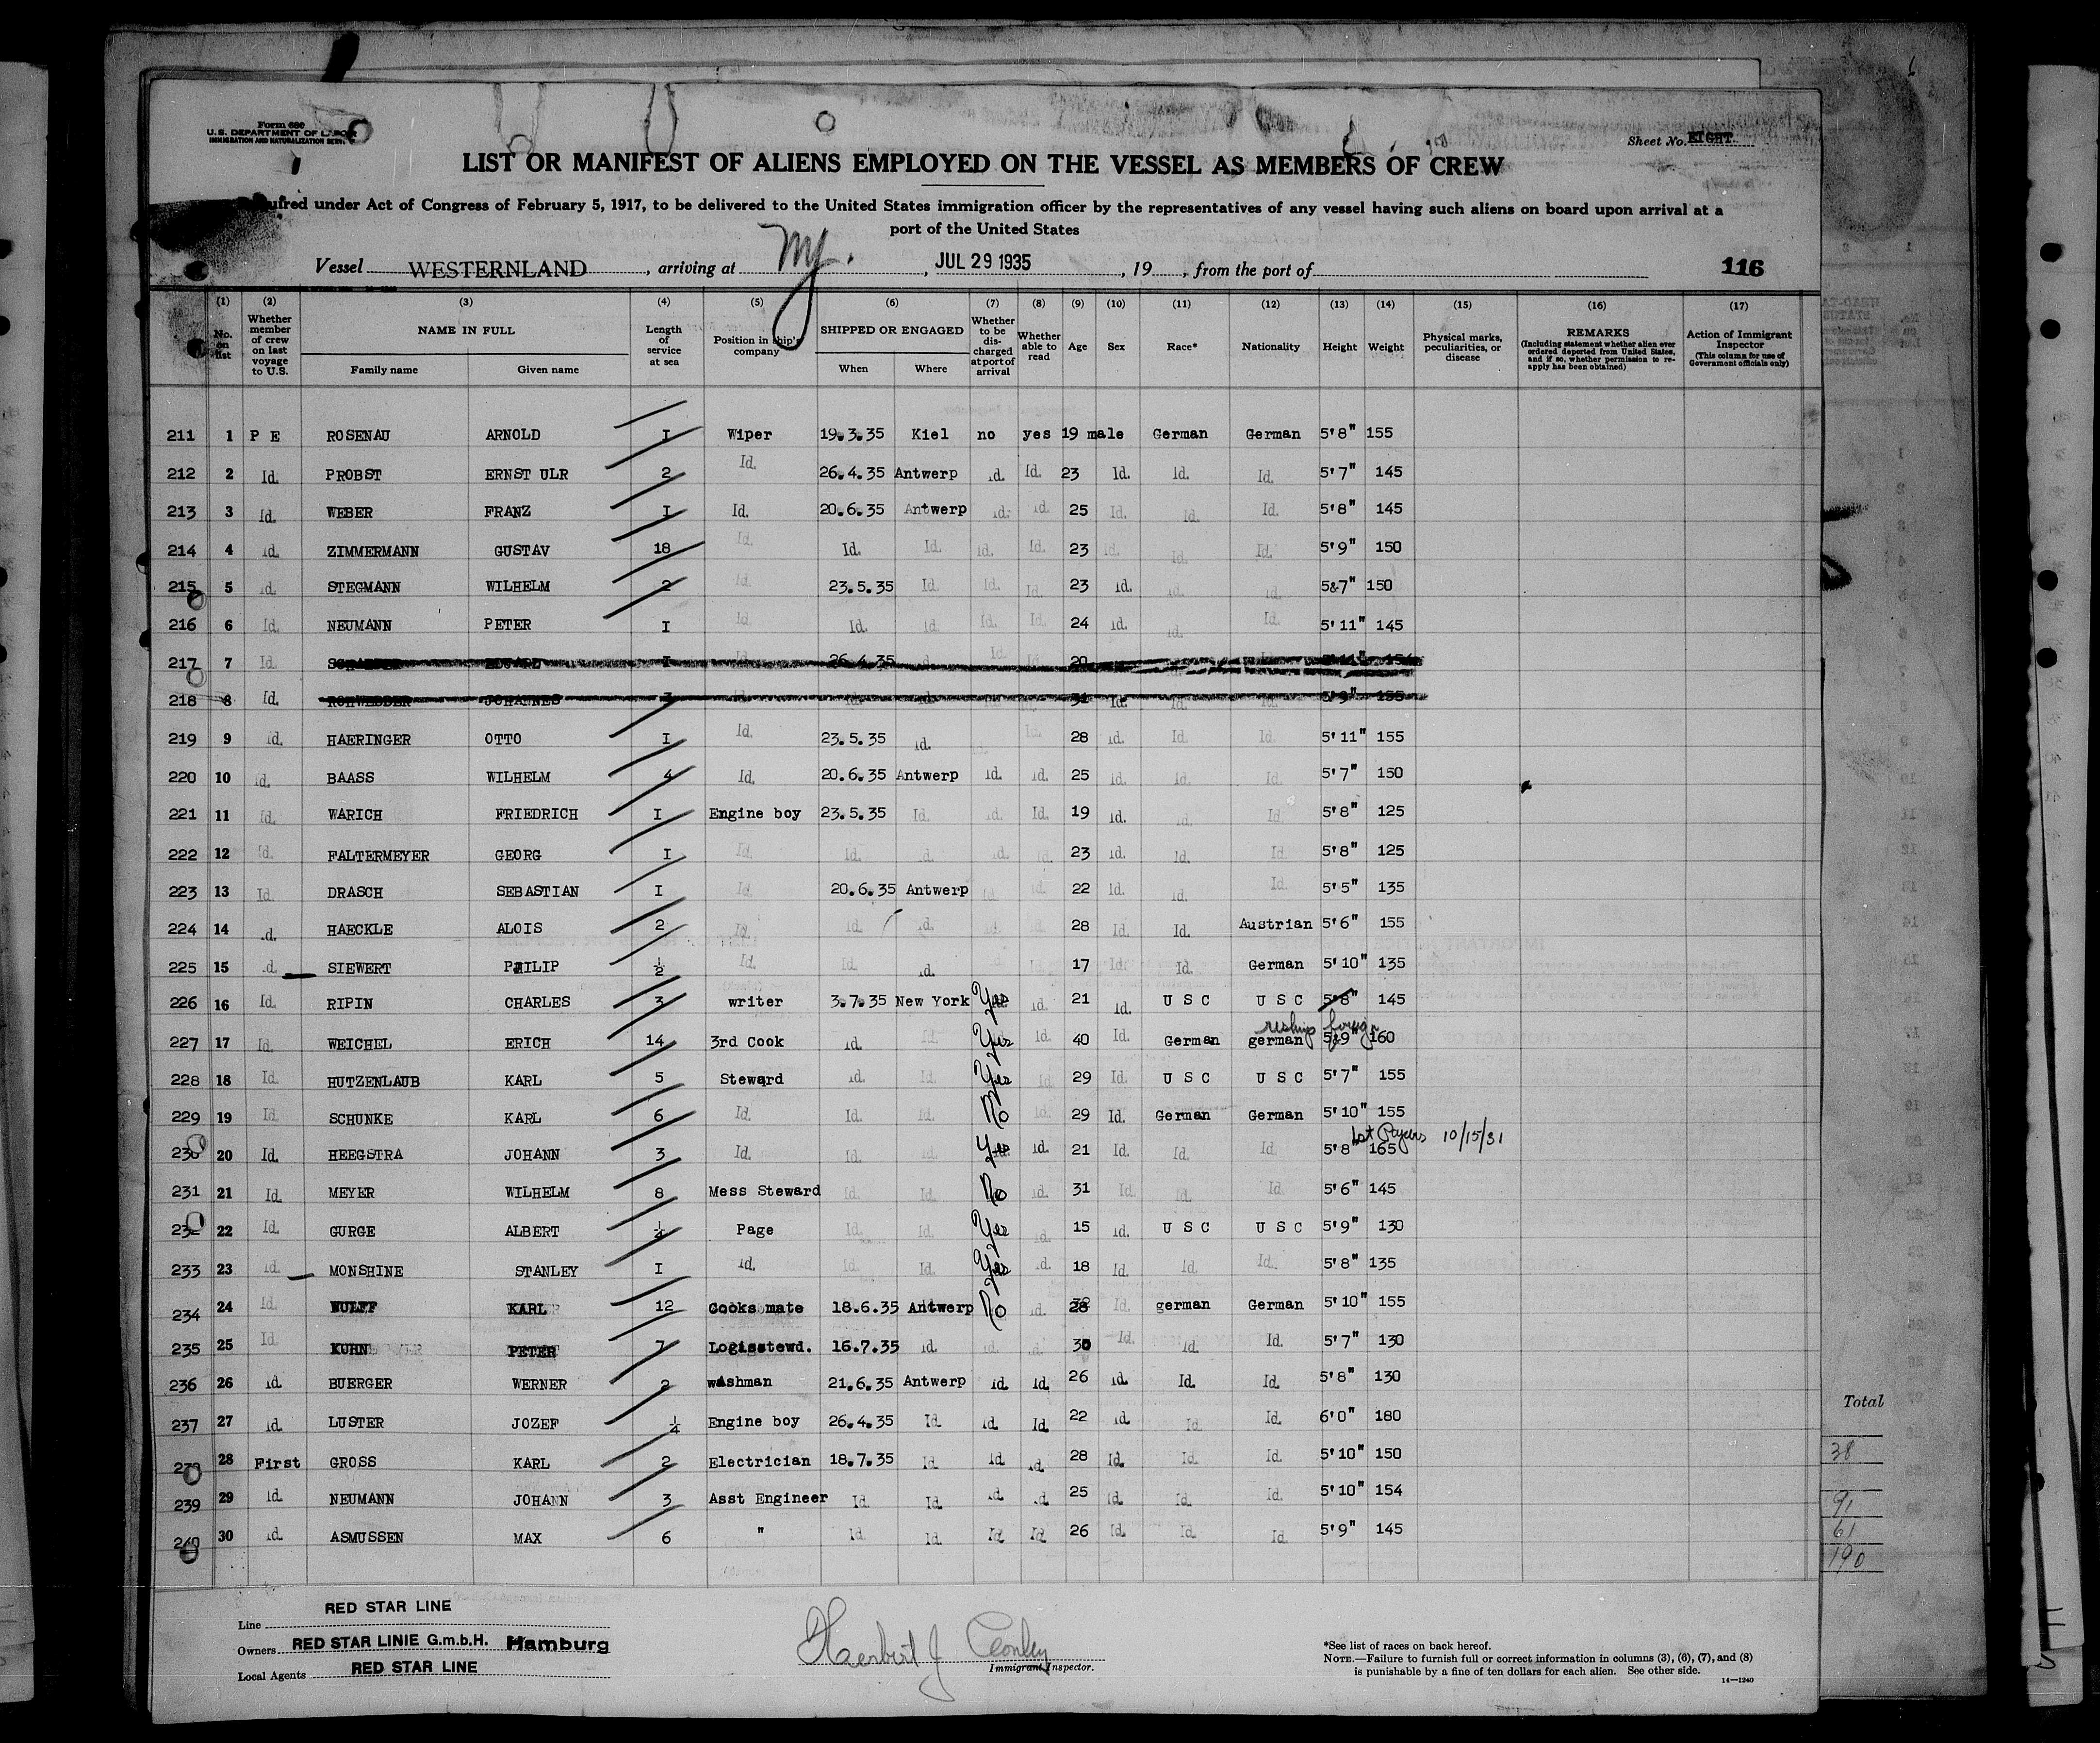 Form 680
U. S. DEPARTMENT OF LABOR
IMMIGRATION AND NATURALIZATION SERV.
Sheet No. EIGHT
LIST OR MANIFEST OF ALIENS EMPLOYED ON THE VESSEL AS MEMBERS OF CREW
under Act of Congress of February 5, 1917, to be delivered to the United States immigration officer by the representatives of any vessel having such aliens on board upon arrival at a
port of the United States
Vessel WESTERNLAND, arriving at NY., JUL 29 1935, 19, from the port of 116
(1) (2) (3) (4) (5) (6) (7) (8) (9) (10) (11) (12) (13) (14) (15) (16) (17)
No. on list Whether member of crew on last voyage to U.S. NAME IN FULL Family name Given name Length of service at sea Position in ship's company SHIPPED OR ENGAGED When Where Whether to be discharged at port of arrival Whether able to read Age Sex Race* Nationality Height Weight Physical marks, peculiarities, or disease REMARKS (Including statement whether alien ever ordered deported from United States, and if so, whether permission to re-apply has been obtained) Action of Immigrant Inspector (This column for use of Government officials only)
211 1 P E ROSENAU ARNOLD I Wiper 19.3.35 Kiel no yes 19 male German German 5'8" 155
212 2 Id. PROBST ERNST ULR 2 Id. 26.4.35 Antwerp Id. Id. 23 Id. Id. Id. 5'7" 145
213 3 Id. WEBER FRANZ I Id. 20.6.35 Antwerp Id. Id. 25 Id. Id. Id. 5'8" 145
214 4 Id. ZIMMERMANN GUSTAV 18 Id. Id. Id. Id. Id. 23 Id. Id. Id. 5'9" 150
215 5 Id. STEGMANN WILHELM 2 Id. 23.5.35 Id. Id. Id. 23 Id. Id. Id. 5&7" 150
216 6 Id. NEUMANN PETER I Id. Id. Id. Id. Id. 24 Id. Id. Id. 5'11" 145
217 7 Id. EDUARD I 26.4.35 Id. 20
218 8 Id. ROHWEDDER JOHANNES 31 Id. Id. Id. 5'9" 155
219 9 Id. HAERINGER OTTO I Id. 23.5.35 Id. Id. Id. 28 Id. Id. Id. 5'11" 155
220 10 Id. BAASS WILHELM 4 Id. 20.6.35 Antwerp Id. Id. 25 Id. Id. Id. 5'7" 150
221 11 Id. WARICH FRIEDRICH I Engine boy 23.5.35 Id. Id. Id. 19 Id. Id. Id. 5'8" 125
222 12 Id. FALTERMEYER GEORG I Id. Id. Id. Id. Id. 23 Id. Id. Id. 5'8" 125
223 13 Id. DRASCH SEBASTIAN I Id. 20.6.35 Antwerp Id. Id. 22 Id. Id. Id. 5'5" 135
224 14 Id. HAECKLE ALOIS 2 Id. Id. Id. 28 Id. Id. Austrian 5'6" 155
225 15 Id. SIEWERT PHILIP ½ Id. Id. Id. Id. 17 Id. Id. German 5'10" 135
226 16 Id. RIPIN CHARLES 3 writer 3.7.35 New York Yes Id. 21 Id. U S C U S C 5'8" 145
reship foreign
227 17 Id. WEICHEL ERICH 14 3rd Cook Id. Id. Yes Id. 40 Id. German german 5&9" 160
228 18 Id. HUTZENLAUB KARL 5 Steward Id. Id. Yes Id. 29 Id. U S C U S C 5'7" 155
229 19 Id. SCHUNKE KARL 6 Id. Id. Id. No Id. 29 Id. German German 5'10" 155
1st Papers 10/15/31
230 20 Id. HEEGSTRA JOHANN 3 Id. Id. Id. Yes Id. 21 Id. Id. Id. 5'8" 165
231 21 Id. MEYER WILHELM 8 Mess Steward Id. Id. No Id. 31 Id. Id. Id. 5'6" 145
232 22 Id. GURGE ALBERT ¼ Page Id. Id. Yes Id. 15 Id. U S C U S C 5'9" 130
233 23 Id. MONSHINE STANLEY I Id. Id. Id. Yes Id. 18 Id. Id. Id. 5'8" 135
234 24 Id. WULFF KARL 12 Cooks mate 18.6.35 Antwerp No Id. 28 Id. german German 5'10" 155
235 25 Id. KUHN PETER 7 Logisstewd. 16.7.35 Id. Id. Id. 30 Id. Id. Id. 5'7" 130
236 26 Id. BUERGER WERNER 2 washman 21.6.35 Antwerp Id. Id. 26 Id. Id. Id. 5'8" 130
237 27 Id. LUSTER JOZEF ¼ Engine boy 26.4.35 Id. Id. Id. 22 Id. Id. Id. 6'0" 180
238 28 First GROSS KARL 2 Electrician 18.7.35 Id. Id. Id. 28 Id. Id. Id. 5'10" 150
239 29 Id. NEUMANN JOHANN 3 Asst Engineer Id. Id. Id. Id. 25 Id. Id. Id. 5'10" 154
240 30 Id. ASMUSSEN MAX 6 " Id. Id. Id. Id. 26 Id. Id. Id. 5'9" 145
Total
38
91
61
190
Line RED STAR LINE
Owners RED STAR LINIE G.m.b.H. Hamburg
Local Agents RED STAR LINE
Herbert J Conley
Immigrant Inspector.
*See list of races on back hereof.
NOTE.—Failure to furnish full or correct information in columns (3), (6), (7), and (8)
is punishable by a fine of ten dollars for each alien. See other side.
14—1240